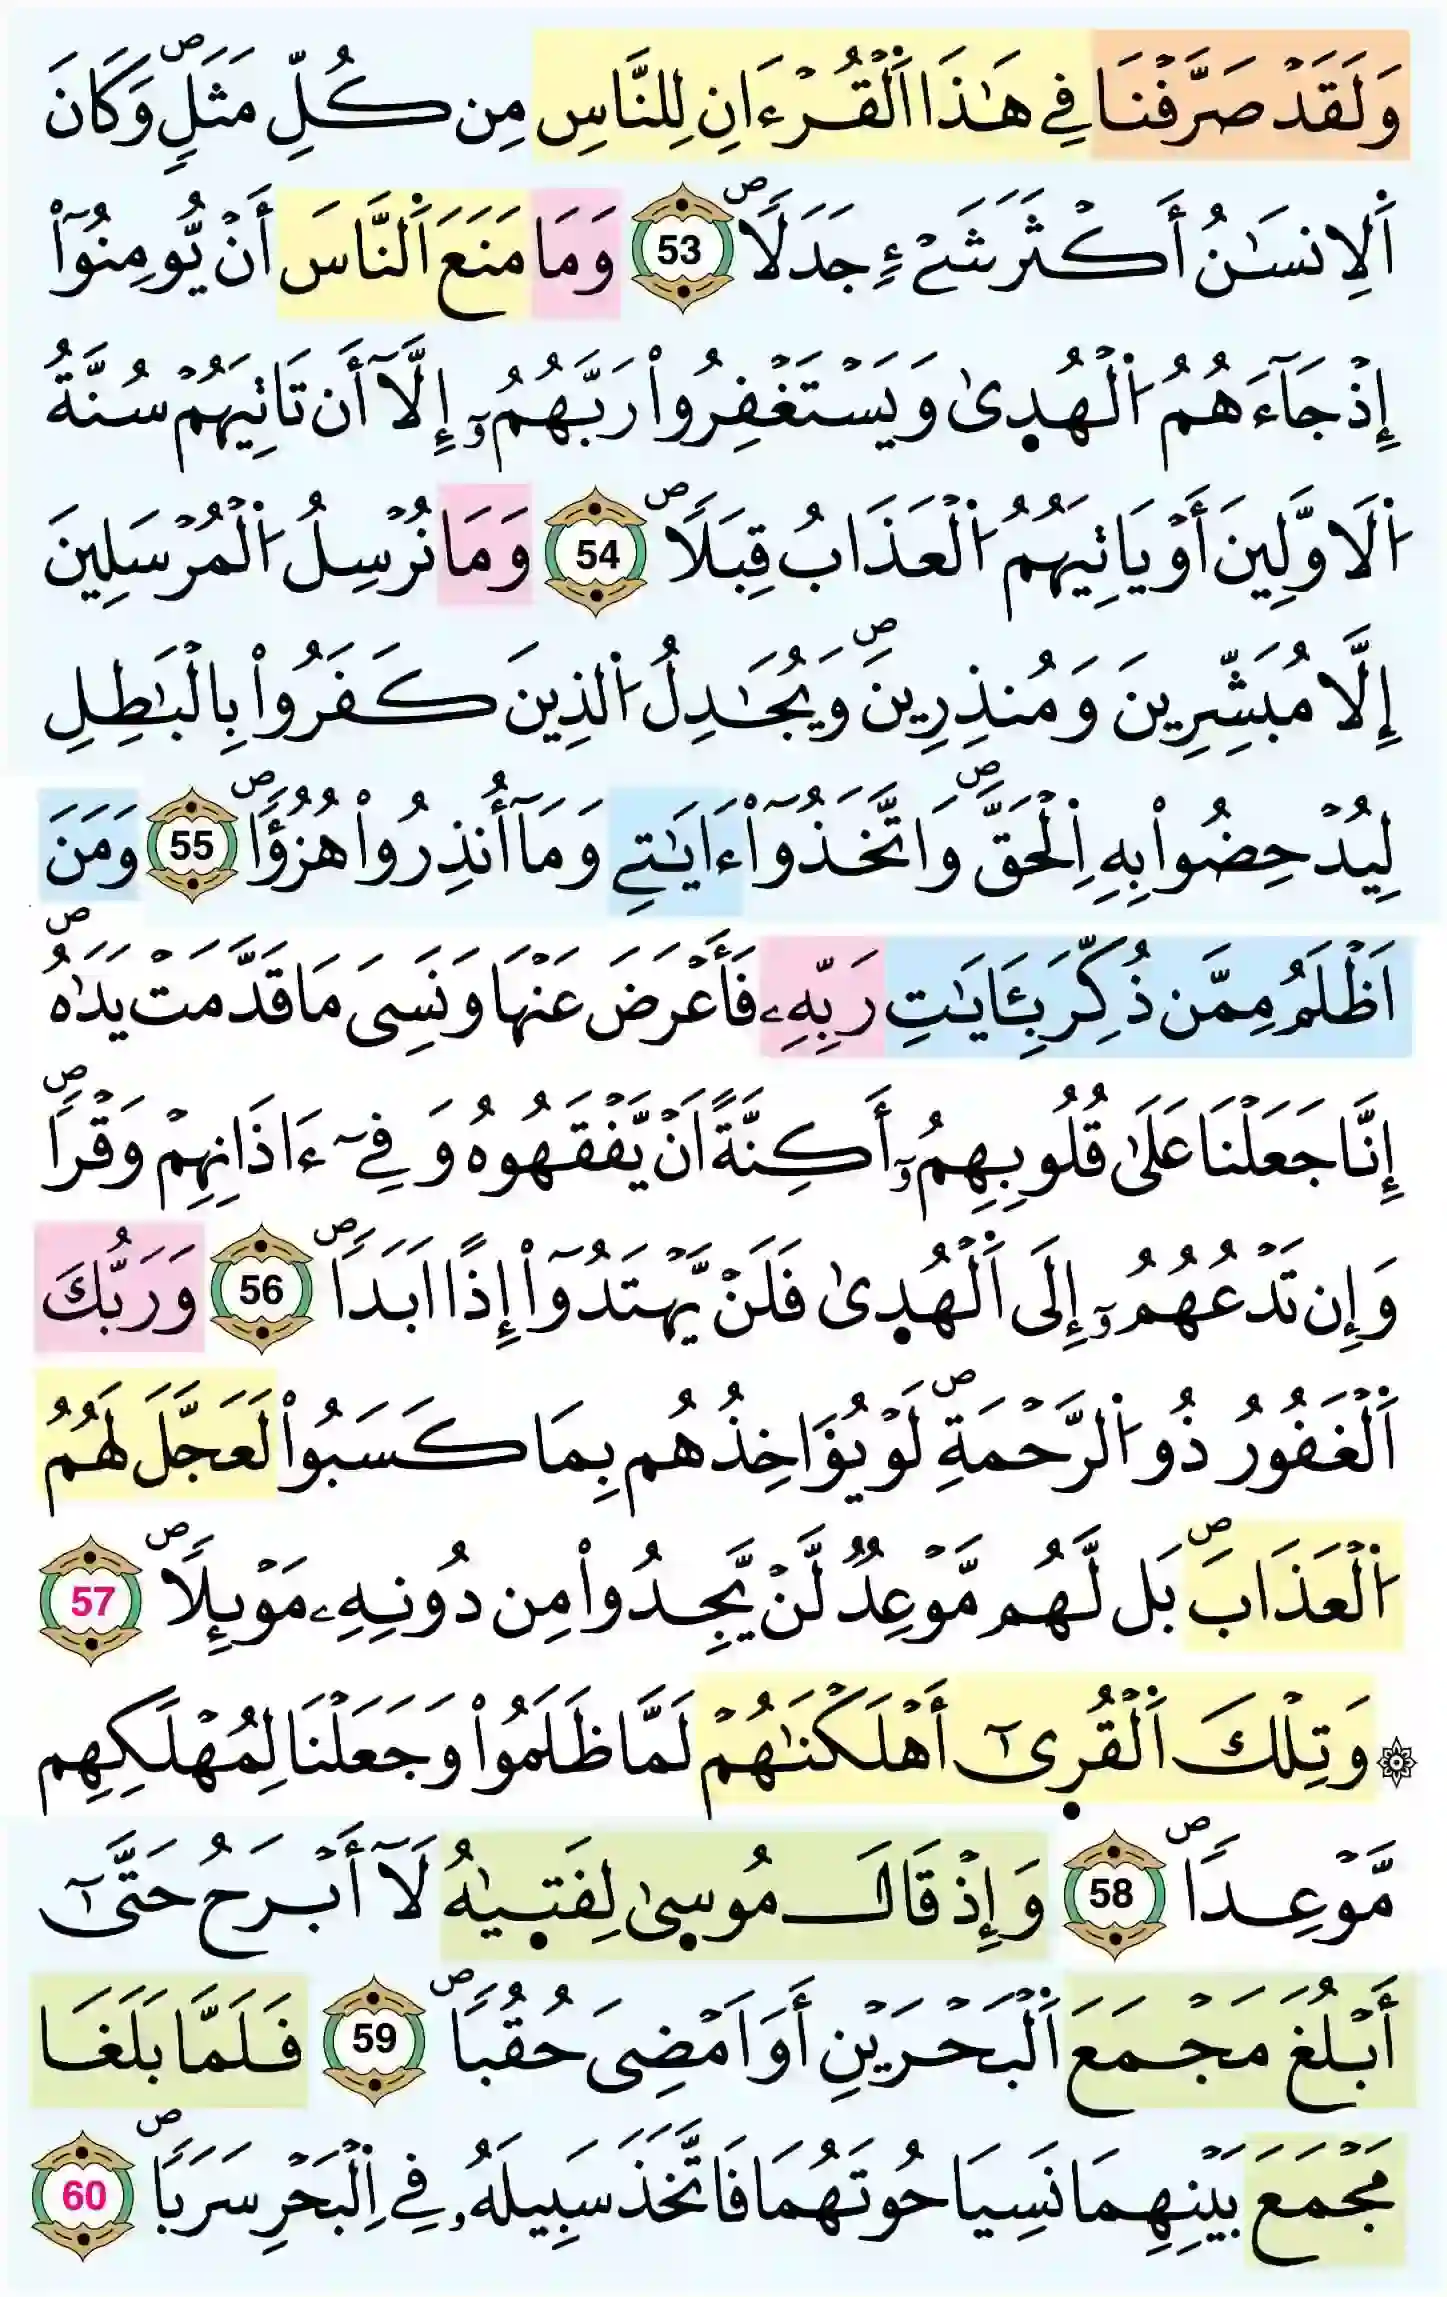 وَلَقَدْ صَرَّفْنَا فِي هَٰذَا اَ۬لْقُرْءَانِ لِلنَّاسِ مِن كُلِّ مَثَلٖۖ وَكَانَ
اَ۬لِانسَٰنُ أَكْثَرَ شَےْءٖ جَدَلاٗۖ 53 وَمَا مَنَعَ اَ۬لنَّاسَ أَنْ يُّومِنُوٓاْ
إِذْ جَآءَهُمُ اُ۬لْهُد۪ىٰ وَيَسْتَغْفِرُواْ رَبَّهُمُۥٓ إِلَّآ أَن تَاتِيَهُمْ سُنَّةُ
اُ۬لَاوَّلِينَ أَوْ يَاتِيَهُمُ اُ۬لْعَذَابُ قِبَلاٗۖ 54 وَمَا نُرْسِلُ اُ۬لْمُرْسَلِينَ
إِلَّا مُبَشِّرِينَ وَمُنذِرِينَۖ وَيُجَٰدِلُ اُ۬لذِينَ كَفَرُواْ بِالْبَٰطِلِ
لِيُدْحِضُواْ بِهِ اِ۬لْحَقَّۖ وَاتَّخَذُوٓاْ ءَايَٰتِے وَمَآ أُنذِرُواْ هُزُؤاٗۖ 55 وَمَنَ
اَظْلَمُ مِمَّن ذُكِّرَ بِـَٔايَٰتِ رَبِّهِۦ فَأَعْرَضَ عَنْهَا وَنَسِىَ مَا قَدَّمَتْ يَدَٰهُۖ
إِنَّا جَعَلْنَا عَلَىٰ قُلُوبِهِمُۥٓ أَكِنَّةً اَنْ يَّفْقَهُوهُ وَفِےٓ ءَاذَانِهِمْ وَقْراٗۖ
وَإِن تَدْعُهُمُۥٓ إِلَى اَ۬لْهُد۪ىٰ فَلَنْ يَّهْتَدُوٓاْ إِذاً اَبَداٗۖ 56 وَرَبُّكَ
اَ۬لْغَفُورُ ذُو اُ۬لرَّحْمَةِۖ لَوْ يُؤَاخِذُهُم بِمَا كَسَبُواْ لَعَجَّلَ لَهُمُ
اُ۬لْعَذَابَۖ بَل لَّهُم مَّوْعِدٞ لَّنْ يَّجِدُواْ مِن دُونِهِۦ مَوْئِلاٗۖ 57
۞ وَتِلْكَ اَ۬لْقُر۪ىٰٓ أَهْلَكْنَٰهُمْ لَمَّا ظَلَمُواْ وَجَعَلْنَا لِمُهْلَكِهِم
مَّوْعِداٗۖ 58 وَإِذْ قَالَ مُوس۪ىٰ لِفَت۪يٰهُ لَآ أَبْرَحُ حَتَّىٰٓ
أَبْلُغَ مَجْمَعَ اَ۬لْبَحْرَيْنِ أَوَ اَمْضِىَ حُقُباٗۖ 59 فَلَمَّا بَلَغَا
مَجْمَعَ بَيْنِهِمَا نَسِيَا حُوتَهُمَا فَاتَّخَذَ سَبِيلَهُۥ فِے اِ۬لْبَحْرِ سَرَباٗۖ 60